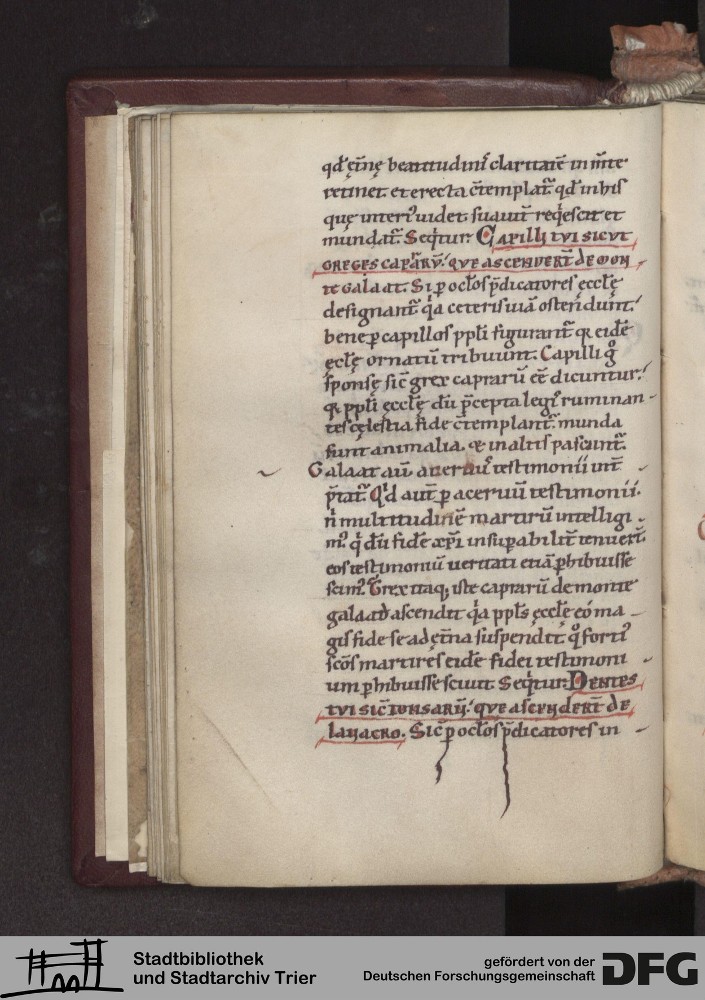 qd̄ et̄nę beatitudinꝭ claritatē in m̄te
retinet. et erecta c̄templat᷑. qd̄ in his
quę interiꝰ uidet. suauit᷑ reqͥescit et
mundat᷑. Seqͥtur. CAPILLI TVI SICVT
GREGES CAPRARV̄. QVE ASCENDERT̄ DE MON
te Galaat. Si ꝑ ocl̄os p̄dicatores eccl̄ę
designant᷑. qͥa ceteris uiā ostendunt.
bene ꝑ capillos ppl̄i figurant᷑ qͥ eidē
ęcl̄ę ornatū tribuunt. Capilli gͦ
sponsę sic̄ grex caprarū eē dicuntur.
qͥ ppl̄i ęccl̄ę dū p̄cepta legꝭ ruminan-
tes cęlestia fide c̄templant᷑. munda
sunt animalia. & in altis pascunt᷑.
Galaat aū. aceruꝰ testimonii int᷑
p̄tat᷑. Qͥd aut̄ ꝑ aceruū testimonii.
n̄ multitudinē martirū intelligi
mꝰ. qͥ dū fidē xp̄i insuꝑabilit᷑ tenuert̄.
eos testimoniū ueritati etiā ꝑhibuisse
scimꝰ. Grex itaq; iste caprarū de monte
galaad ascendit. qͥa ppl̄s ęccl̄ę eo ma-
gis fide se ad et̄na suspendit. qͦ fortiꝰ
sc̄os martires eidē fidei testimoni
um ꝑhibuisse sciuit. Seqͥtur. DENTES
TVI SIC̄ TONSARV̄. QVE ASCENDERT̄ DE
LAVACRO. Sic̄ ꝑ ocl̄os p̄dicatores in-
Stadtbibliothek
und Stadtarchiv Trier
gefördert von der
Deutschen Forschungsgemeinschaft
DFG